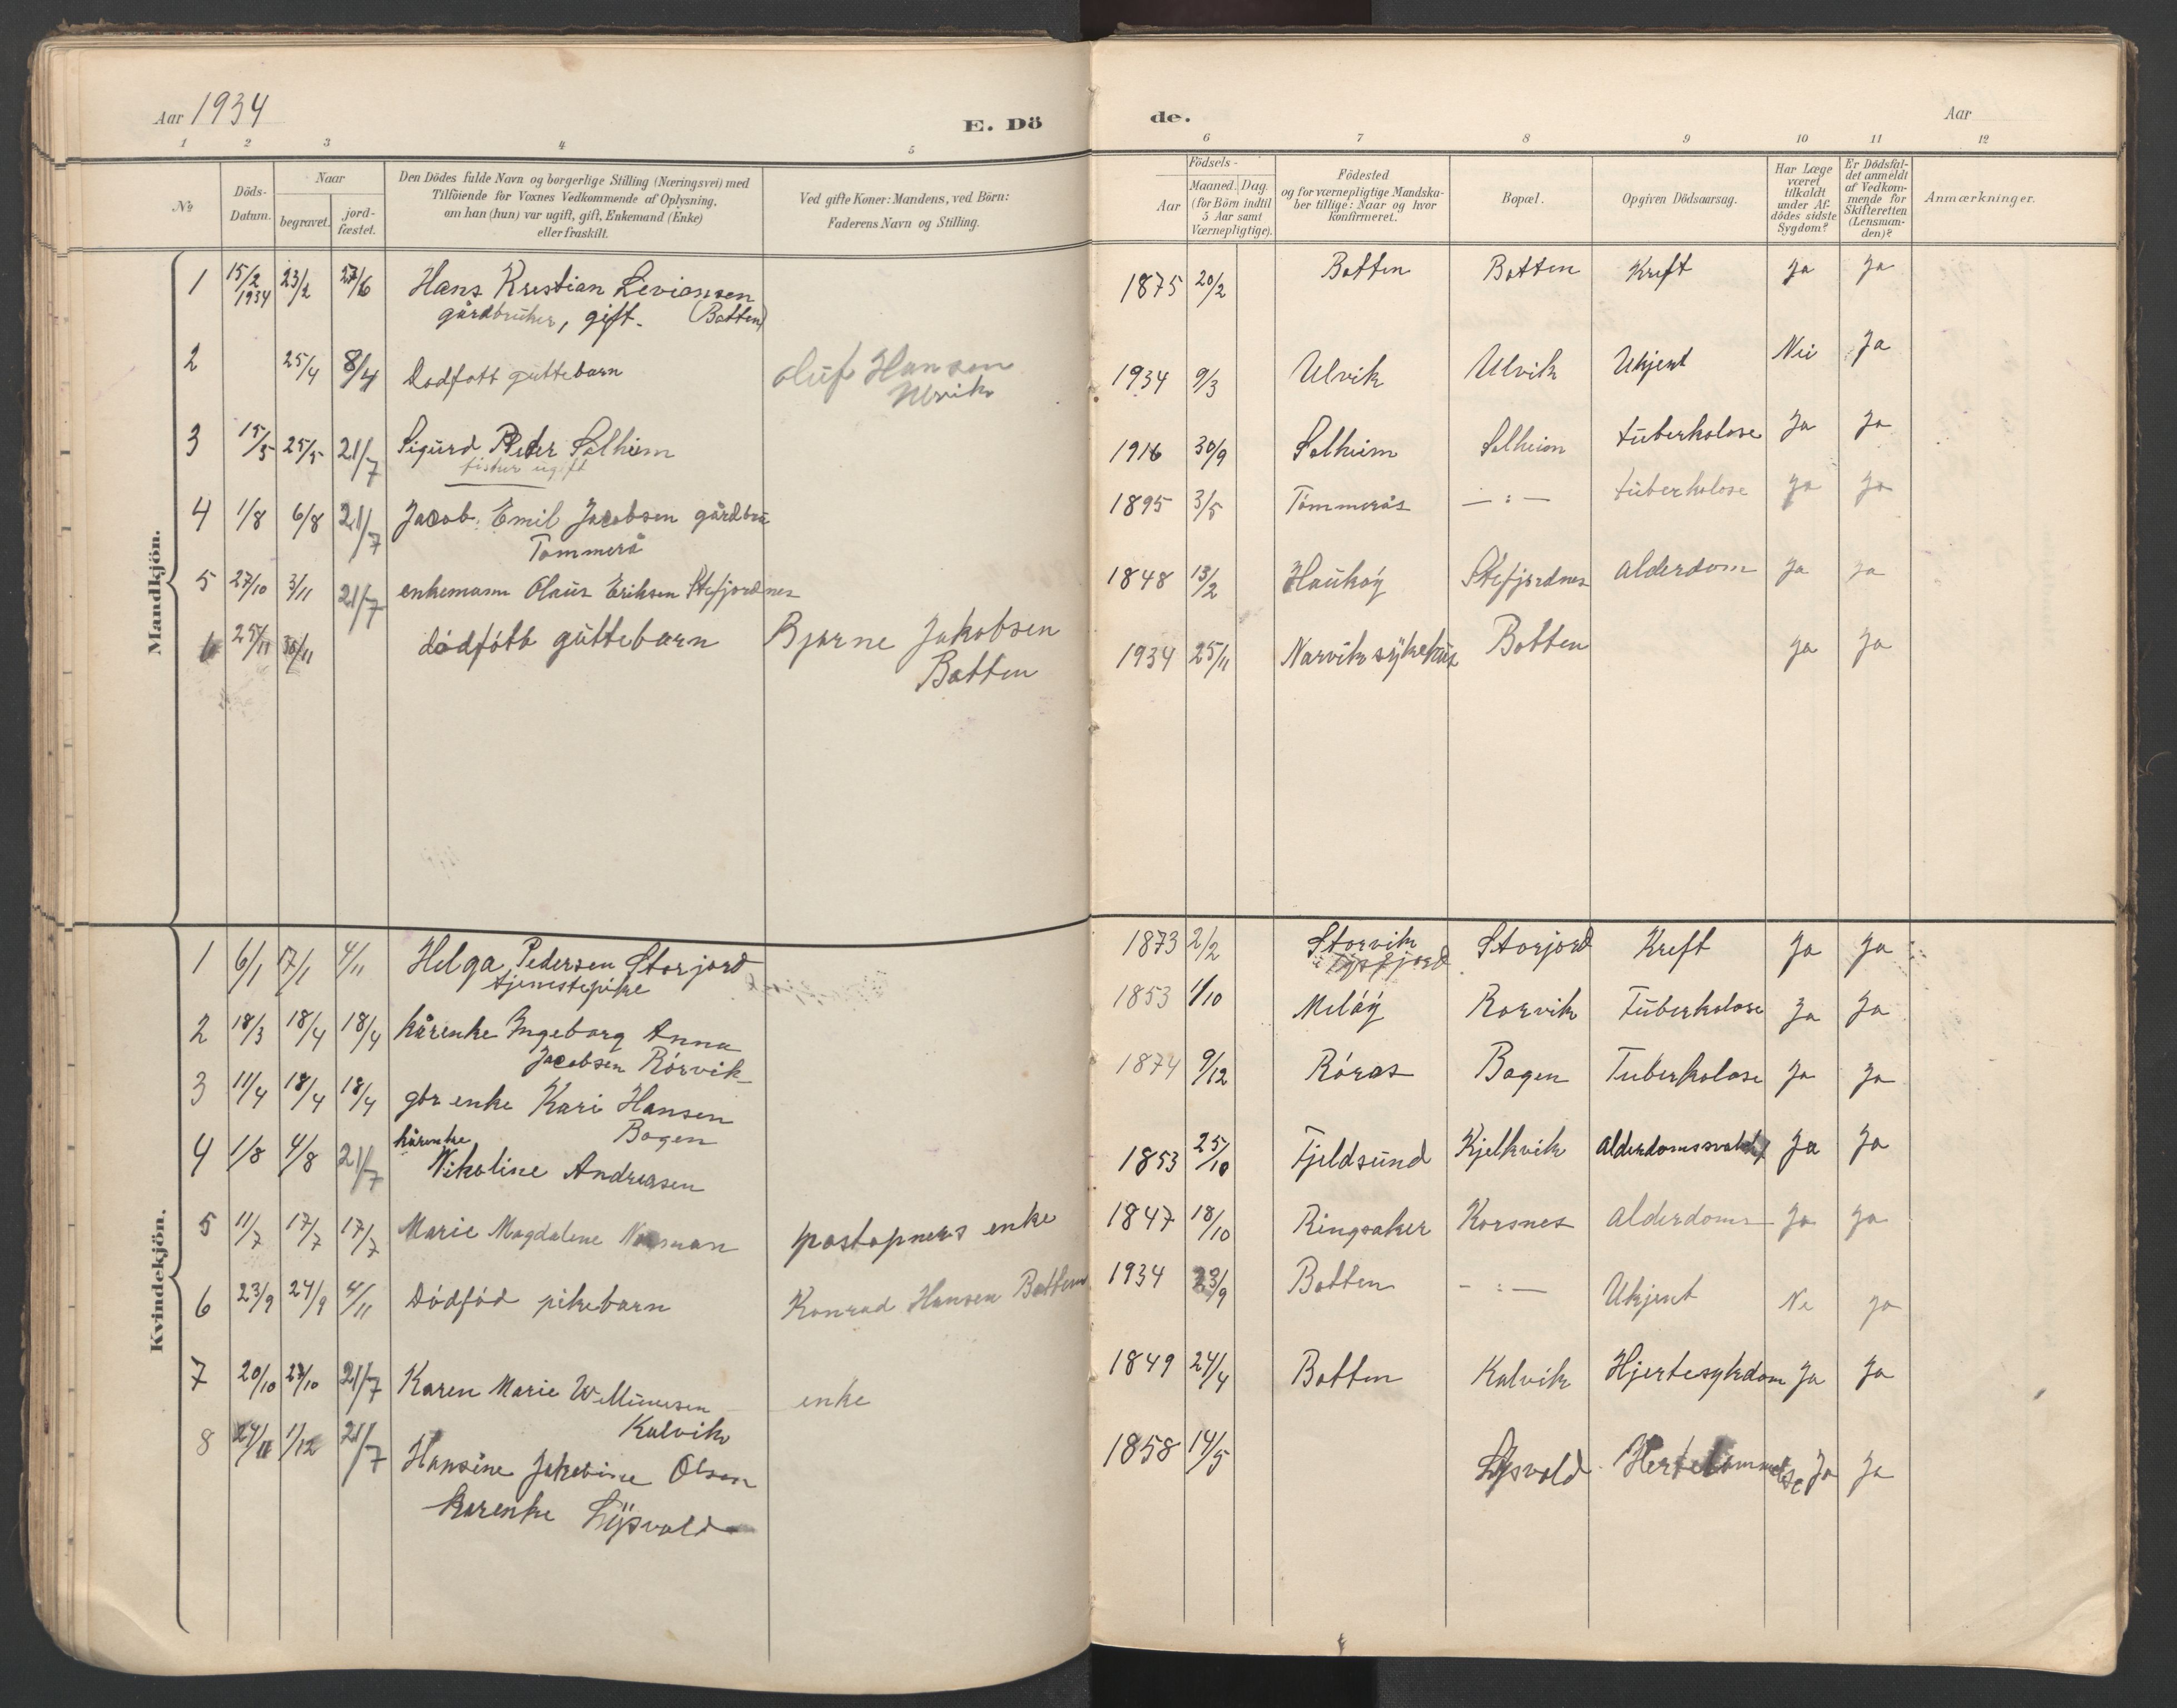 Aar 1934
E. Dö
de.
Aar
1 2 3 4 5 6 7 8 9 10 11 12
№
Döds-
Datum.
Naar
begravet.
jord-
fæstet.
Den Dödes fulde Navn og borgerlige Stilling (Næringsvei) med
Tilföiende for Voxnes Vedkommende af Oplysning,
om han (hun) var ugift, gift, Enkemand (Enke)
eller fraskilt.
Ved gifte Koner: Mandens, ved Börn:
Faderens Navn og Stilling.
Födsels-
Aar
Maaned. Dag.
(for Börn indtil
5 Aar samt
Værnepligtige).
Födested
og for værnepligtige Mandska-
ber tillige: Naar og hvor
konfirmeret.
Bopæl.
Opgiven Dödsaarsag.
Har Læge
været
tilkaldt
under Af-
dödes sidste
Sygdom?
Er Dödsfal-
det anmeldt
af Vedkom-
mende for
Skifteretten
(Lensman-
den)?
Anmærkninger.
Mandkjön.
1 15/2 1934 23/2 27/6 Hans Kristian Leviansen 1875 20/2 Botten Botten Kreft Ja Ja
gårdbruker, gift. (Botten)
2 25/4 8/4 Dødføtt guttebarn Oluf Hansen 1934 9/3 Ulvik Ulvik Ukjent Nei Ja
Ulvik
3 15/5 25/5 21/7 Sigurd Peder Solheim 1916 30/9 Solheim Solheim tuberkolose Ja Ja
fisker ugift
4 1/8 6/8 21/7 Jacob Emil Jacobsen gårdbru 1895 3/5 Tømmerås — : — tuberkolose Ja Ja
Tømmerå
5 27/10 3/11 21/7 enkemann Olaus Eriksen Stefjordnes 1848 13/2 Haukøy Stefjordnes alderdom Ja Ja
6 25/11 30/11 dødføtt guttebarn Bjarne Jakobsen 1934 25/11 Narvik sykehus Botten Ja Ja
Botten
Kvindekjön.
1 6/1 17/1 4/11 Helga Pedersen Storjord 1873 2/2 Storvik Storjord Kreft Ja Ja
tjenestepike i Tysfjord
2 18/3 18/4 18/4 kårenke Ingeborg Anna 1853 1/10 Meløy Rørvik Tuberkolose Ja Ja
Jacobsen Rørvik
3 11/4 18/4 18/4 gbr enke Kari Hansen 1874 9/12 Røros Bogen Tuberkolose Ja Ja
Bogen
4 1/8 4/8 21/7 kårenke 1853 25/10 Fjeldsund Kjelkvik Ja Ja
Nikoline Andreasen
5 11/7 17/7 17/7 Marie Magdalene Norman poståpners enke 1847 18/10 Ringsaker Korsnes alderdoms Ja Ja
6 23/9 24/9 4/11 Dødfød pikebarn Konrad Hansen Botten 1934 23/9 Botten — : — Ukjent Ne Ja
7 20/10 27/10 21/7 Karen Marie enke 1849 24/4 Botten Kalvik Hjertesykdom Ja Ja
Kalvik
8 24/11 1/12 21/7 Hansine Jakobine Olsen 1858 14/5 Lysvold Hertelammelse Ja Ja
kårenke Lysvold